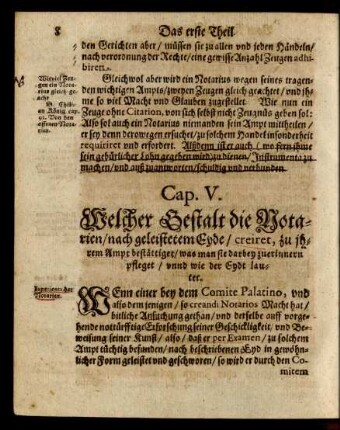 8 Das erste Theil
den Gerichten aber/ müssen sie zu allen und jeden Händeln/
nach verordnung der Rechte/ eine gewisse Anzahl Zeugen adhi-
biren.
Gleichwol aber wird ein Notarius wegen seines tragen-
den wichtigen Ampts/ zweyen Zeugen gleich geachtet/ und jh-
me so viel Macht und Glauben zugestellet. Wie nun ein
Zeuge ohne Citation, von sich selbst nicht Zeugnüs geben sol:
Also sol auch ein Notarius niemanden sein Ampt mittheilen/
er sey denn derowegen ersuchet/ zu solchem Handel insonderheit
requiriret und erfordert. Alsdenn ist er auch ( wo fern ihme
sein gebürlicher Lohn gegeben wird) zu dienen/ Instrumenta zu
machen/ und auß zu antworten/ schuldig und verbunden.
Cap. V.
Welcher Gestalt die Nota-
rien/ nach geleistetem Eyde/ creiret, zu jh-
rem Ampt bestättiget/ was man sie darbey zuerinnern
pfleget / unnd wie der Eydt lau-
tet.
WEnn einer bey dem Comite Palatino, und
also dem jenigen/ so creandi Notarios Macht hat/
bitliche Ansuchung gethan/ und derselbe auff vorge-
hende notürfftige Erforschung seiner Geschickligkeit/ und Be-
weisung seiner Kunst/ also/ daß er per Examen/ zu solchem
Ampt tüchtig befunden/ nach beschriebenen Eyd in gewöhn-
licher Form geleistet und geschworen/ so wird er durch den Co-
mitem